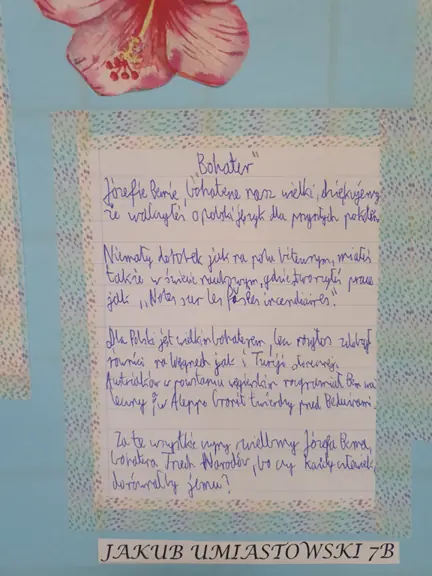 „Bohater"
Józefie Bemie, bohaterze nasz wielki, dziękujemy
że walczyłeś o polski język dla przyszłych pokoleń.
Niemały dorobek jak na polu bitewnym, miałeś
także w świecie naukowym, gdzie tworzyłeś prace
jak „Notes sur les fusées incendiaires".
Dla Polski jest wielkim bohaterem, lecz rozgłos zdobył
również na Węgrzech jak i Turcji
Austriaków w powstaniu węgierskim rozgramiał Bem
w Aleppo bronił twierdzy przed Beduinami.
Za te wszystkie czyny wielbimy Józefa Bema,
bohatera Trzech Narodów, bo czy każdy człowiek
dorównałby jemu?
JAKUB UMIASTOWSKI 7B